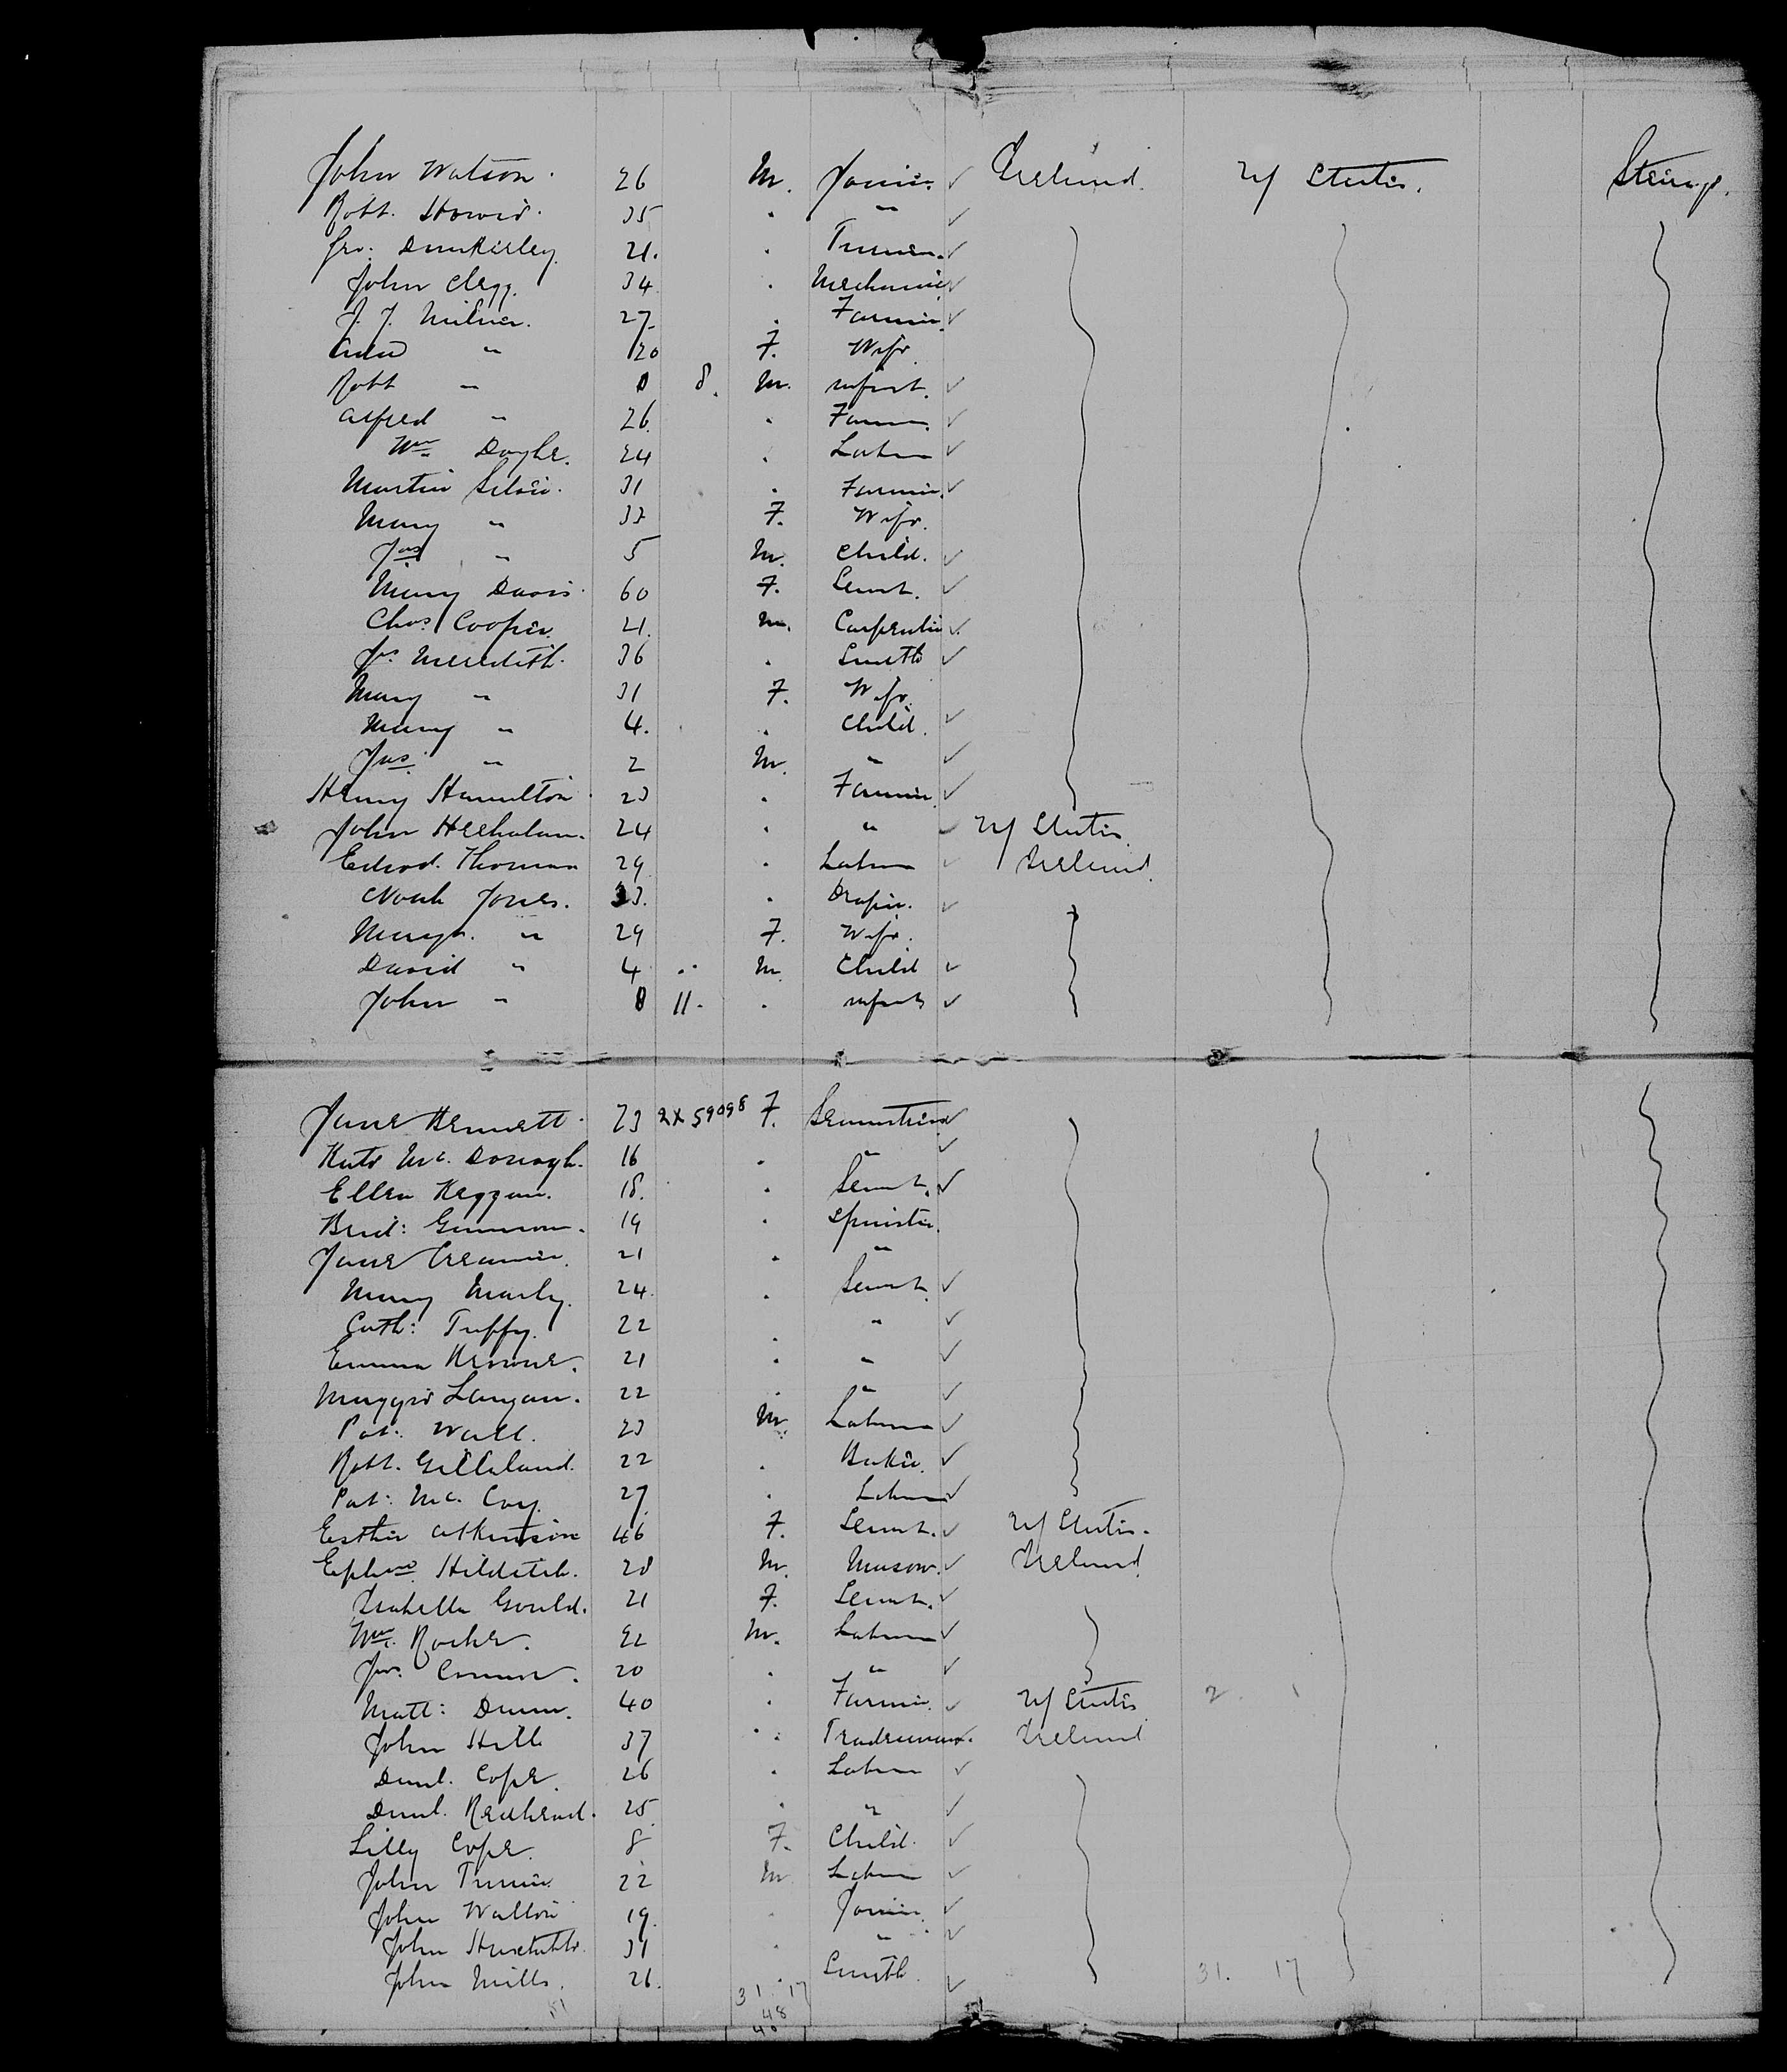 John Watson. 26 M. Joiner. ✓ Ireland. U/ States. Steerage.
Robt. Howie. 35 . " ✓
Geo: Dunkerley. 21. . Turner. ✓
John Clegg. 34 . Mechanic ✓
J. J. Milner. 27. . Farmer. ✓
Ada " 20 F. Wife
Robt " 0 8. M. infant. ✓
Alfred " 26. . Farmer. ✓
Wm Doyle. 24 . Labr ✓
Martin 31 . Farmer. ✓
Mary " 33 F. Wife.
Jas " 5 M. Child. ✓
Mary Davis. 60 F. Servt. ✓
Chas. Cooper. 21. M. Carpenter ✓
Js. Meredith. 36 . Smith ✓
Mary " 31 F. Wife.
Mary " 4. . Child. ✓
Jas. " 2 M. " ✓
Henry Hamilton. 23 . Farmer ✓
John 24 . " ✓ U/ States.
Edwd. Thomas 29. . Labr ✓ Ireland.
Noah Jones. 33. . Draper. ✓
Margt. " 29 F. Wife.
David " 4 M. Child ✓
John " 0 11. . infant ✓
Jane Bennett. 23 2X59098 F. Seamstress ✓
Kate Mc. Donogh. 16 . " ✓
Ellen Keggan. 18. . Servt. ✓
Brid: Gannon. 19 . Spinster.
Jane Creamer. 21 . "
Mary Marley. 24. . Servt. ✓
Cath: Tuffy. 22 . " ✓
Emma Browne. 21 . " ✓
Maggie Langan. 22 . " ✓
Pat: Wall. 23 M. Labr ✓
Robt. Gilleland. 22 . Baker. ✓
Pat: Mc. Coy. 27. . Labr ✓
Esther Atkinson 46 F. Servt. ✓ U/ States.
Ephm. Hilditch. 28 M. Mason. ✓ Ireland
Isabella Gould. 21 F. Servt. ✓
Wm. Roche. 22 M. Labr ✓
Jno. Connor. 20 . " ✓
Matt: Dunn. 40 . Farmer. ✓ U/ States 2
John Hill 37 . Tradesman. Ireland
Danl. Cope. 26 . Labr ✓
Danl. Redhead. 25. . " ✓
Lilly Cope. 8 F. Child. ✓
John Turner 22 M Labr ✓
John Walton 19. . Joiner. ✓
John Huxtable. 31 . " ✓
John Mills. 26. . Smith. ✓ 31. 17
31 17
48